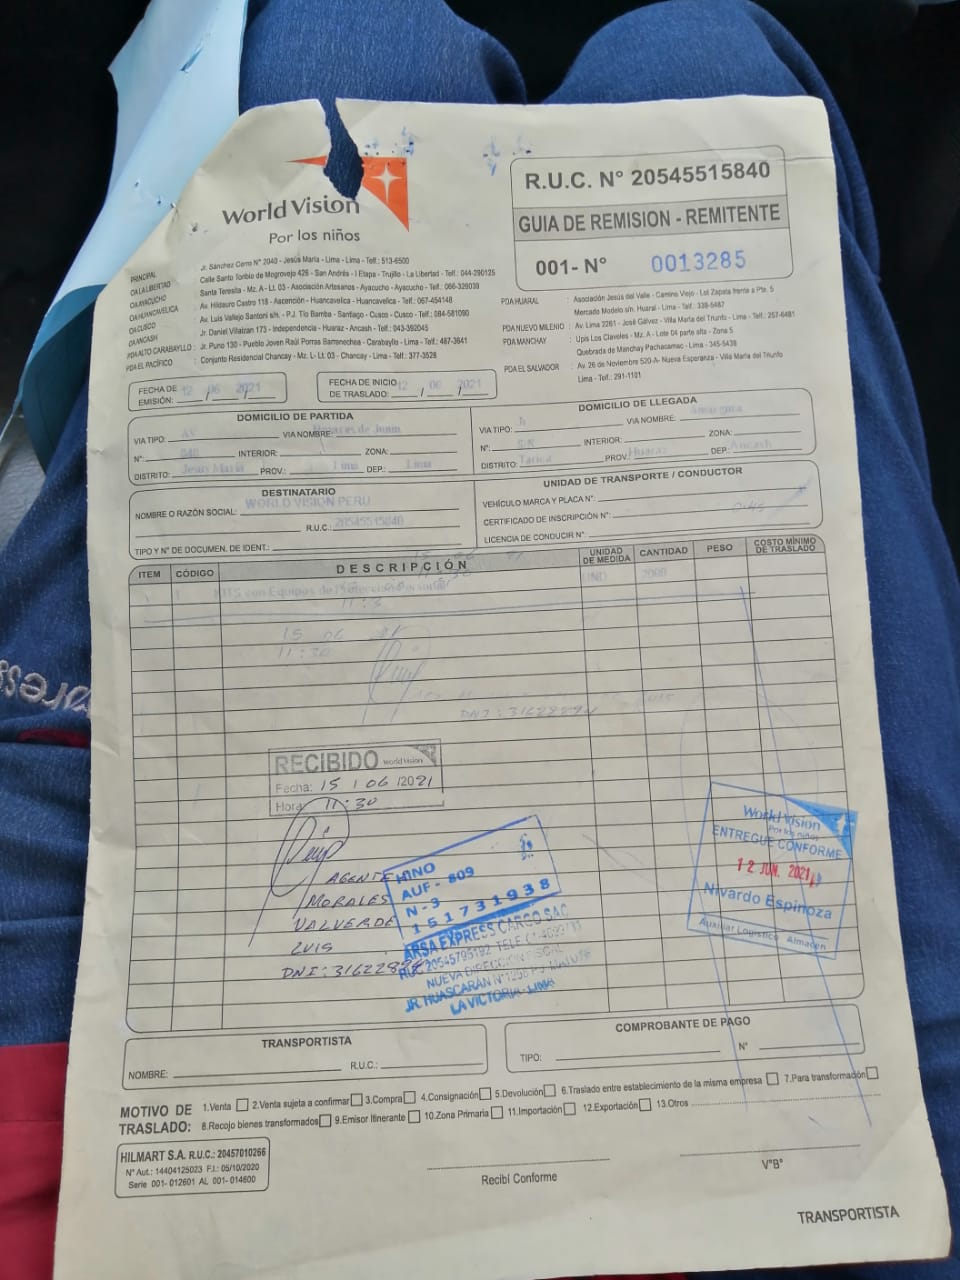 World Vision
Por los niños
R.U.C. N° 20545515840
GUIA DE REMISION - REMITENTE
001- N° 0013285
PRINCIPAL : Jr. Sánchez Cerro N° 2040 - Jesús María - Lima - Telf.: 513-6500
OA LA LIBERTAD : Calle Santo Toribio de Mogrovejo 426 - San Andrés - I Etapa - Trujillo - La Libertad - Telf.: 044-290125
OA AYACUCHO : Santa Teresita - Mz. A - Lt. 03 - Asociación Artesanos - Ayacucho - Ayacucho - Telf.: 066-326039
OA HUANCAVELICA : Av. Hildauro Castro 118 - Ascención - Huancavelica - Huancavelica - Telf.: 067-454148
OA CUSCO : Av. Luis Vallejo Santoni s/n. - P.J. Tio Bamba - Santiago - Cusco - Cusco - Telf.: 084-581090
OA ANCASH : Jr. Daniel Villaizan 173 - Independencia - Huaraz - Ancash - Telf.: 043-392045
PDA ALTO CARABAYLLO : Jr. Puno 130 - Pueblo Joven Raúl Porras Barrenechea - Carabayllo - Lima - Telf.: 487-3641
PDA EL PACÍFICO : Conjunto Residencial Chancay - Mz. L- Lt. 03 - Chancay - Lima - Telf.: 377-3528
PDA HUARAL : Asociación Jesús del Valle - Camino Viejo - Lot Zapata frente a Pte. 5
Mercado Modelo s/n. Huaral - Lima - Telf.: 339-5487
PDA NUEVO MILENIO : Av. Lima 2261 - José Gálvez - Villa María del Triunfo - Lima - Telf.: 257-6481
PDA MANCHAY : Upis Los Claveles - Mz. A - Lote 04 parte alta - Zona 5
Quebrada de Manchay Pachacamac - Lima - 345-5438
PDA EL SALVADOR : Av. 26 de Noviembre 520-A- Nueva Esperanza - Villa María del Triunfo
Lima - Telf.: 291-1101
FECHA DE EMISIÓN: 12 / 06 / 2021
FECHA DE INICIO DE TRASLADO: 12 / 06 / 2021
DOMICILIO DE PARTIDA
VIA TIPO: AV VIA NOMBRE: de Junin
N°: INTERIOR: ZONA:
DISTRITO: Jesus Maria PROV.: Lima DEP.: Lima
DOMICILIO DE LLEGADA
VIA TIPO: Jr VIA NOMBRE:
N°: S/N INTERIOR: ZONA:
DISTRITO: Tarica PROV.: Huaraz DEP.: Ancash
DESTINATARIO
NOMBRE O RAZÓN SOCIAL: WORLD VISION PERU
R.U.C.: 20545515840
TIPO Y N° DE DOCUMEN. DE IDENT.:
UNIDAD DE TRANSPORTE / CONDUCTOR
VEHÍCULO MARCA Y PLACA N°:
CERTIFICADO DE INSCRIPCIÓN N°:
LICENCIA DE CONDUCIR N°:
ITEM CÓDIGO DESCRIPCIÓN UNIDAD DE MEDIDA CANTIDAD PESO COSTO MÍNIMO DE TRASLADO
1 KITS con Equipos de Protección Personal UND 2000
15 06
11:30
DNI: 31622894
RECIBIDO World Vision
Fecha: 15 / 06 / 2021
Hora: 11:30
AGENTE
MORALES
VALVERDE
LUIS
DNI: 31622894
HINO
AUF - 809
N-3
151731938
ARSA EXPRESS CARGO SAC
RUC 20545795192
NUEVA DIRECCION FISCAL
JR. HUASCARAN N°
LA VICTORIA - LIMA
World Vision
Por los niños
ENTREGUE CONFORME
12 JUN. 2021
Nivardo Espinoza
Auxiliar Logistico Almacen
TRANSPORTISTA
NOMBRE: R.U.C.:
COMPROBANTE DE PAGO
TIPO: N°
MOTIVO DE TRASLADO:
1.Venta 2.Venta sujeta a confirmar 3.Compra 4.Consignación 5.Devolución 6.Traslado entre establecimiento de la misma empresa 7.Para transformación
8.Recojo bienes transformados 9.Emisor Itinerante 10.Zona Primaria 11.Importación 12.Exportación 13.Otros
HILMART S.A. R.U.C.: 20457010266
N° Aut.: 14404125023 F.I.: 05/10/2020
Serie 001- 012601 AL 001- 014600
Recibí Conforme
V°B°
TRANSPORTISTA